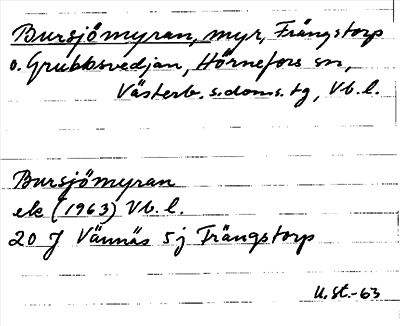 Bursjömyran, myr, Främgstorp
o. Grubbsvedjan, Hörnefors sn,
Västerb. s. doms. tg, Vb. l.
Bursjömyran
ek (1963) Vb. l.
20 J Vännäs 5j Främgstorp
U. St.-63